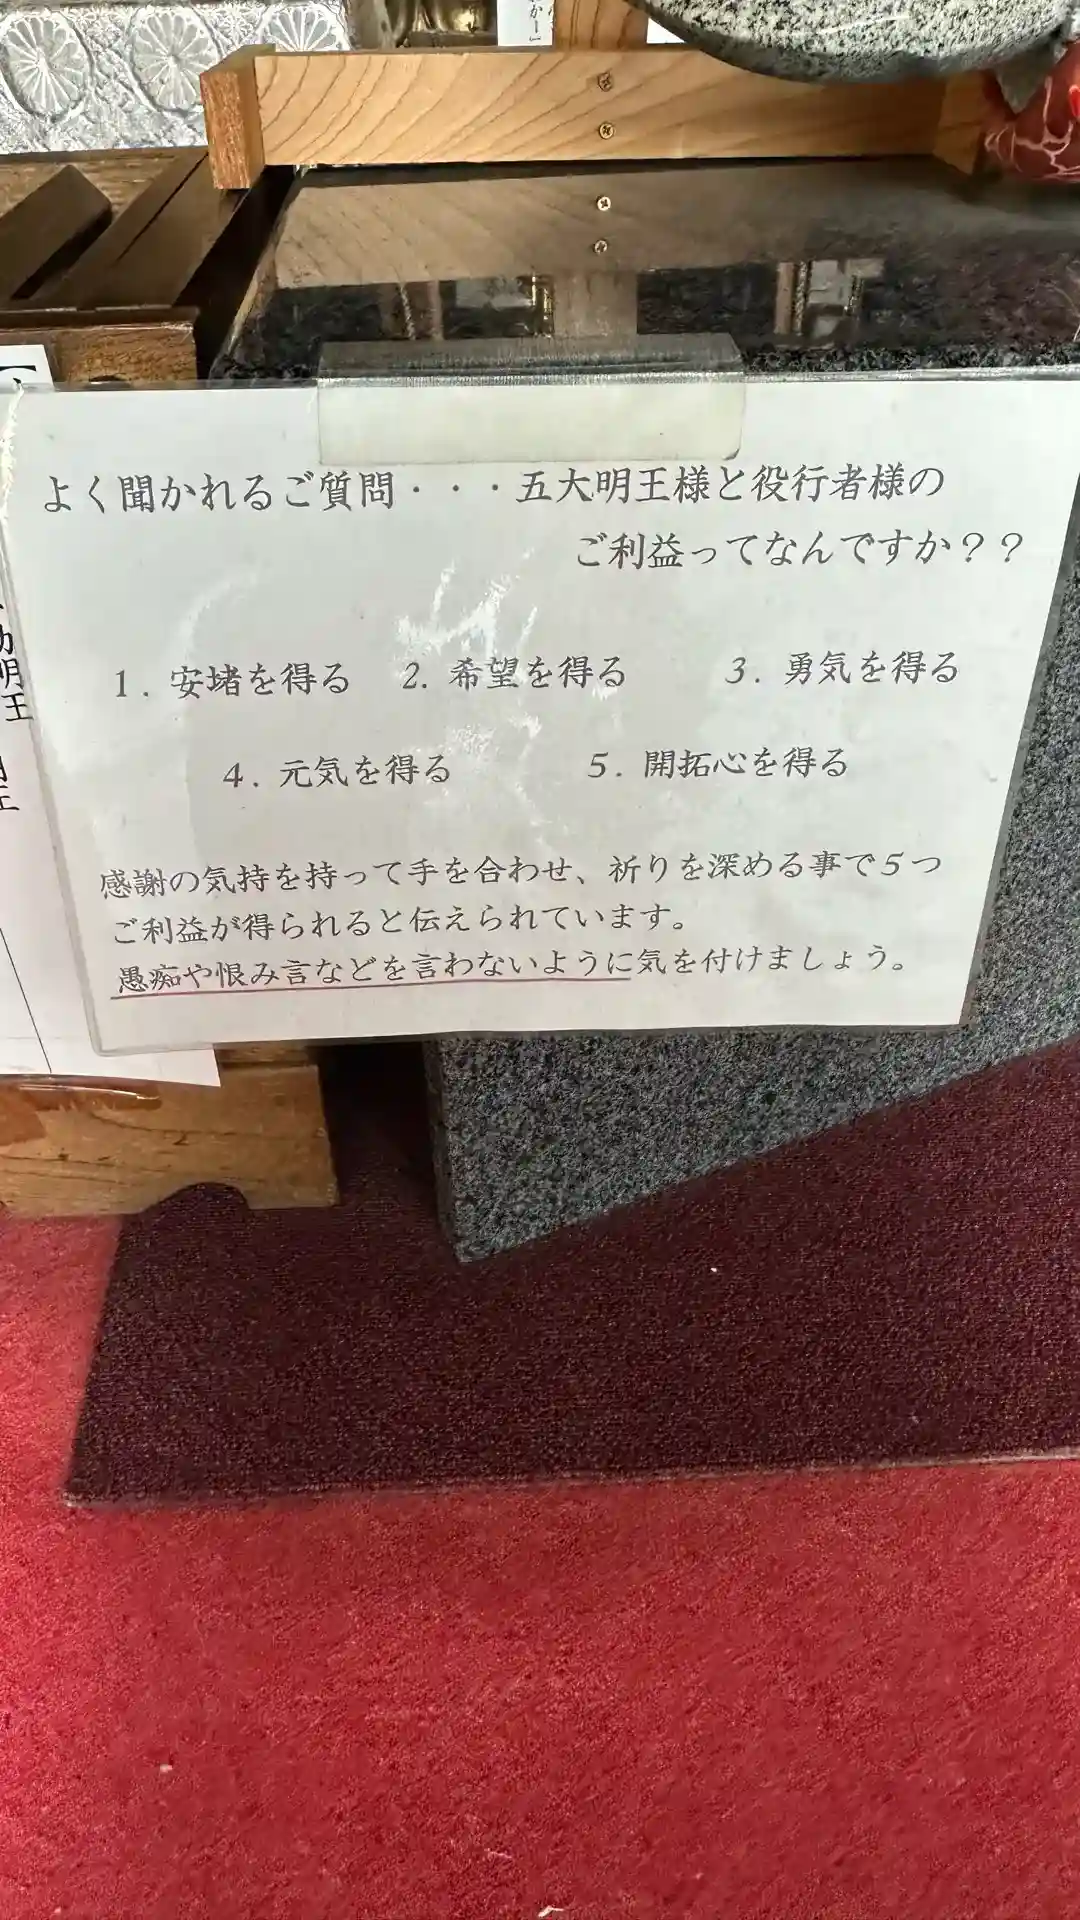 よく聞かれるご質問・・・五大明王様と役行者様の
ご利益ってなんですか？？
1．安堵を得る　2．希望を得る　3．勇気を得る
4．元気を得る　5．開拓心を得る
感謝の気持を持って手を合わせ、祈りを深める事で5つ
ご利益が得られると伝えられています。
愚痴や恨み言などを言わないように気を付けましょう。
明王